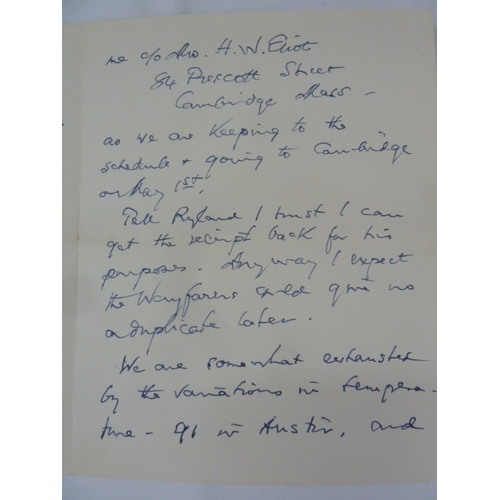 me c/o Mrs. H. W. Eliot
84 Prescott Street
Cambridge Mass -
as we are keeping to the
schedule & going to Cambridge
on May 1st.
Tell Ryland I trust I can
get the receipt back for his
purposes. Anyway I expect
the Wayfarers could give me
a duplicate later.
We are somewhat exhausted
by the variations in tempera-
ture - 91 in Austin, and